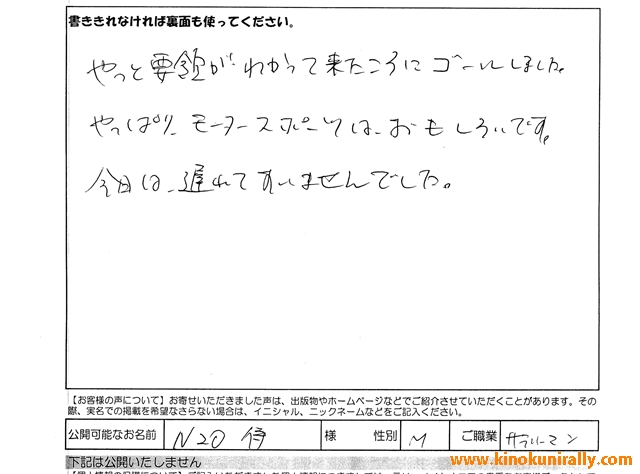 書ききれなければ裏面も使ってください。
やっと要領がわかって来たころにゴールしました。
やっぱり、モータースポーツは、おもしろいです。
今日は、遅れてすいませんでした。
【お客様の声について】お寄せいただきました声は、出版物やホームページなどでご紹介させていただくことがあります。その
際、実名での掲載を希望なさらない場合は、イニシャル、ニックネームなどをご記入ください。
公開可能なお名前 N20 様 性別 M ご職業 サラリーマン
下記は公開いたしません
www.kinokunirally.com